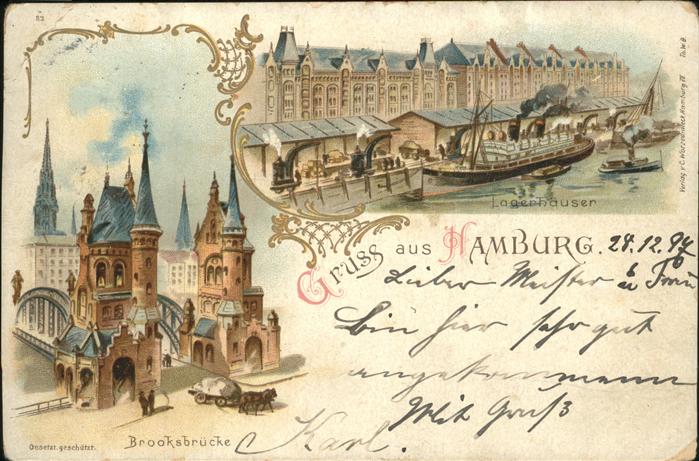 83
Lagerhäuser
Verlag v. C. Worzedialek, Hamburg IV.
Gruss aus HAMBURG. 28.12.97
Lieber Meister u Frau
bin hier sehr gut
angekommen
Mit Gruß
Karl.
Brooksbrücke
Gesetzl. geschützt.